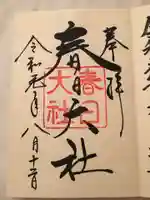 奉拝
春日大社
春日
大社
令和元年八月十一日